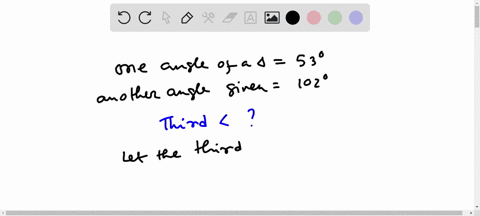 one angle of a Δ = 53°
another angle given = 102°
Third < ?
Let the third